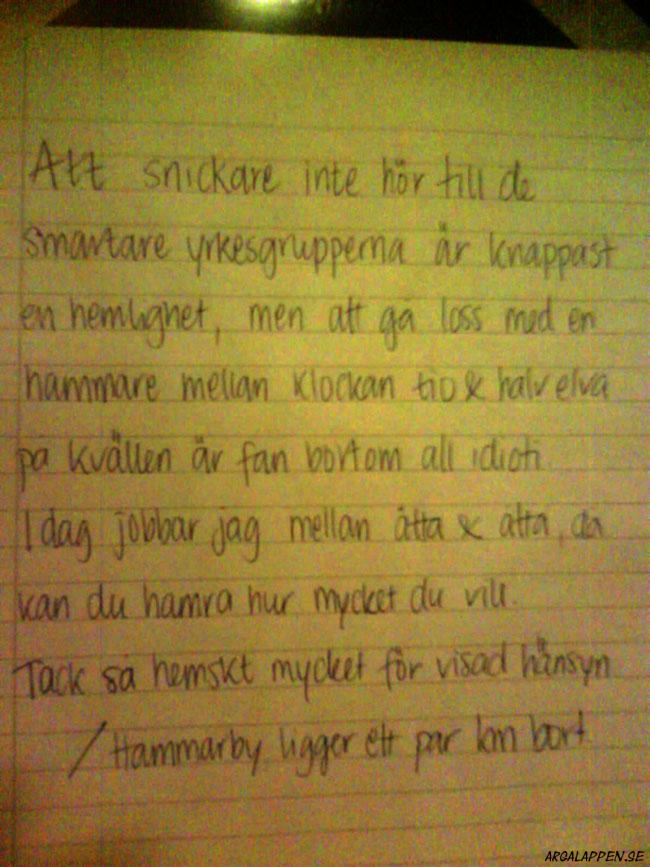 Att snickare inte hör till de
smartare yrkesgrupperna är knappast
en hemlighet, men att gå loss med en
hammare mellan klockan tio & halv elva
på kvällen är fan bortom all idioti.
I dag jobbar jag mellan åtta & åtta, då
kan du hamra hur mycket du vill.
Tack så hemskt mycket för visad hänsyn
/Hammarby ligger ett par km bort
ARGALAPPEN.SE